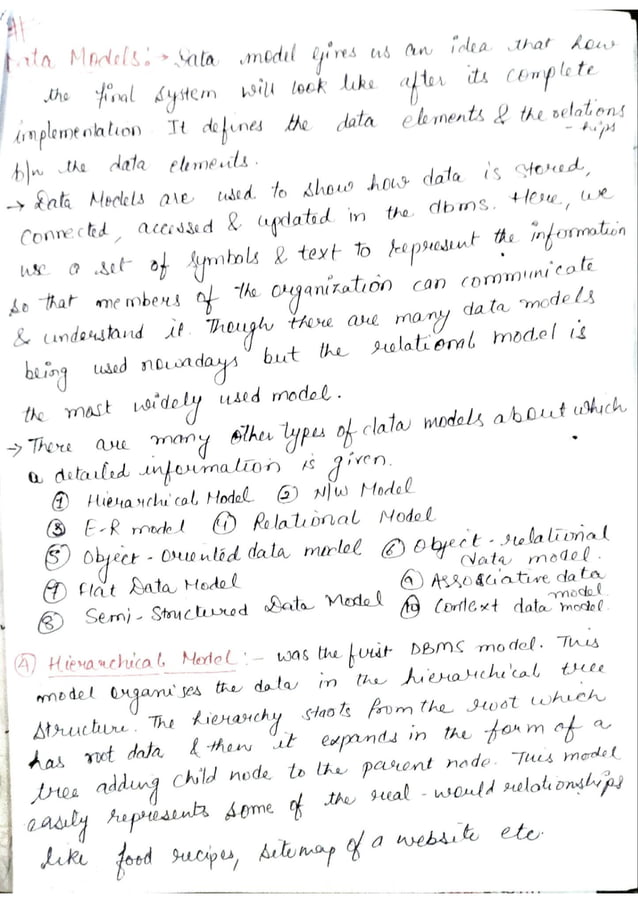 Data Models:→ Data model gives us an idea that how
the final system will look like after its complete
implementation. It defines the data elements & the relations
-hips
b/w the data elements.
→ Data Models are used to show how data is stored,
connected, accessed & updated in the dbms. Here, we
use a set of symbols & text to represent the information
so that members of the organization can communicate
& understand it. Though there are many data models
being used nowadays but the relational model is
the most widely used model.
→ There are many other types of data models about which
a detailed information is given.
① Hierarchical Model ② N/W Model
③ E-R model ④ Relational Model
⑤ Object-oriented data model ⑥ Object-relational
data model.
⑦ Flat Data Model ⑨ Associative data
model
⑧ Semi-Structured Data Model ⑩ Context data model.
Ⓐ Hierarchical Model:- was the first DBMS model. This
model organises the data in the hierarchical tree
structure. The hierarchy starts from the root which
has root data & then it expands in the form of a
tree adding child node to the parent node. This model
easily represents some of the real-would relationships
like food recipes, sitemap of a website etc.